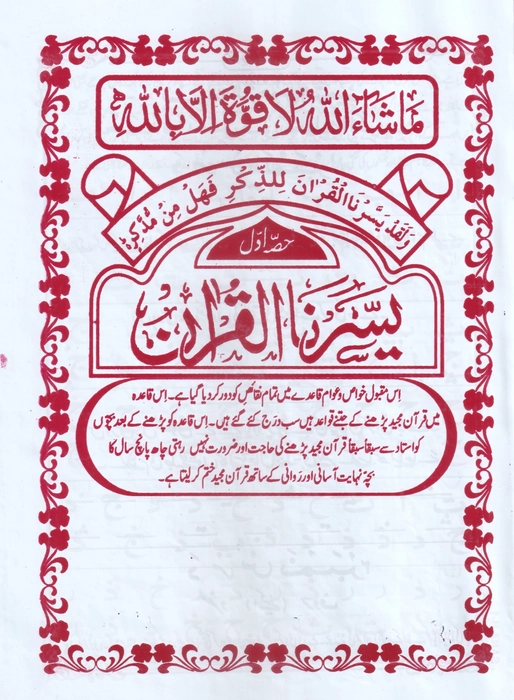 مَاشَاءَ اللّٰهُ لَا قُوَّةَ اِلَّا بِاللّٰهِ
وَلَقَدْ يَسَّرْنَا الْقُرْاٰنَ لِلذِّكْرِ فَهَلْ مِنْ مُّدَّكِرٍ
حصّہ اوّل
يَسَّرْنَا الْقُرْاٰن
اِس مقبول خواص و عوام قاعدے میں تمام نقائص کو دور کر دیا گیا ہے۔ اِس قاعدہ
میں قرآن مجید پڑھنے کے جتنے قواعد ہیں سب درج کئے گئے ہیں۔ اِس قاعدہ کو پڑھنے کے بعد بچوں
کو استاد سے سبقاً سبقاً قرآن مجید پڑھنے کی حاجت اور ضرورت نہیں رہتی چاہے پانچ سال کا
بچہ نہایت آسانی اور روانی کے ساتھ قرآن مجید ختم کر لیتا ہے۔